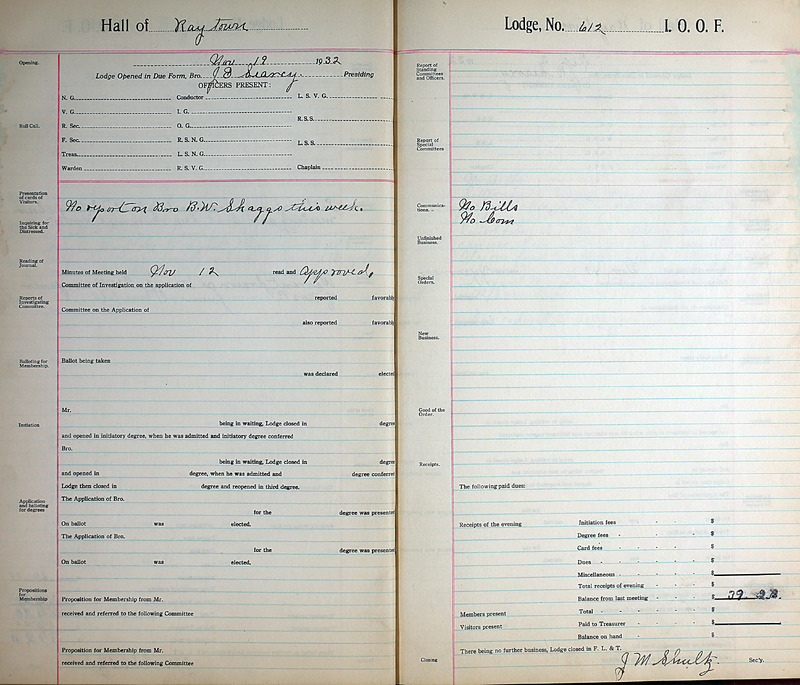 Hall of Raytown Lodge, No. 612 I. O. O. F.
Opening.
Nov 19 1932
Lodge Opened in Due Form, Bro. J D Searcy Presiding
OFFICERS PRESENT:
Roll Call.
N. G. Conductor L. S. V. G.
V. G. I. G.
R. S. S.
R. Sec. O. G.
F. Sec. R. S. N. G.
L. S. S.
Treas. L. S. N. G.
Warden R. S. V. G. Chaplain
Presentation of cards of Visitors.
No report on Bro B.W. Skaggs this week.
Inquiring for the Sick and Distressed.
Reading of Journal.
Minutes of Meeting held Nov 12 read and approved.
Committee of Investigation on the application of
Reports of Investigating Committee.
reported favorabl
Committee on the Application of
also reported favorabl
Balloting for Membership.
Ballot being taken
was declared elected
Mr.
Initiation
being in waiting, Lodge closed in degre
and opened in initiatory degree, when he was admitted and initiatory degree conferred
Bro.
being in waiting, Lodge closed in degre
and opened in degree, when he was admitted and degree conferre
Lodge then closed in degree and reopened in third degree.
Application and balloting for degrees
The Application of Bro.
for the degree was presente
On ballot was elected.
The Application of Bro.
for the degree was presente
On ballot was elected.
Propositions for Membership
Proposition for Membership from Mr.
received and referred to the following Committee
Proposition for Membership from Mr.
received and referred to the following Committee
Report of Standing Committees and Officers.
Report of Special Committees
Communications. -
No Bills
No Com
Unfinished Business.
Special Orders.
New Business.
Good of the Order.
Receipts.
The following paid dues:
Receipts of the evening Initiation fees $
Degree fees $
Card fees $
Dues $
Miscellaneous $
Total receipts of evening $
Balance from last meeting $ 39.28
Members present Total $
Visitors present Paid to Treasurer $
Balance on hand $
There being no further business, Lodge closed in F. L. & T.
Closing J M Shultz Sec'y.